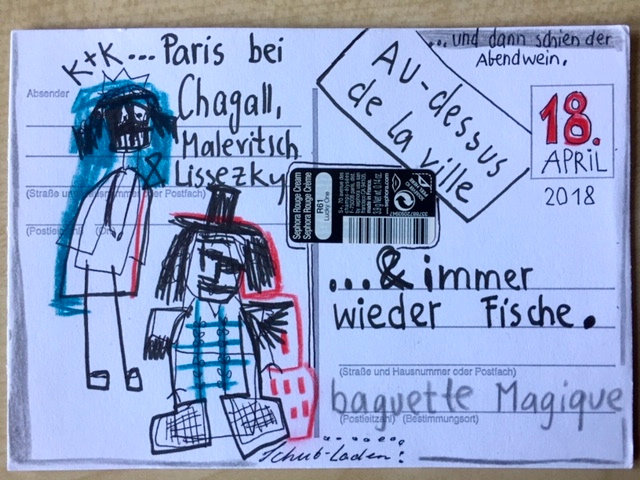 K+K... Paris bei
Chagall,
Malevitsch
& Lissezky
Absender
(Straße und Hausnummer oder Postfach)
(Postleitzahl) (Ort)
...und dann schien der
Abendwein.
AU-dessus
de la ville
18.
APRIL
2018
Sephora Rouge Cream
Sephora Rouge Crème
R61
Lucky One
sephora.com
...& immer
wieder Fische.
(Straße und Hausnummer oder Postfach)
baguette Magique
(Postleitzahl) (Bestimmungsort)
Schub-Laden!